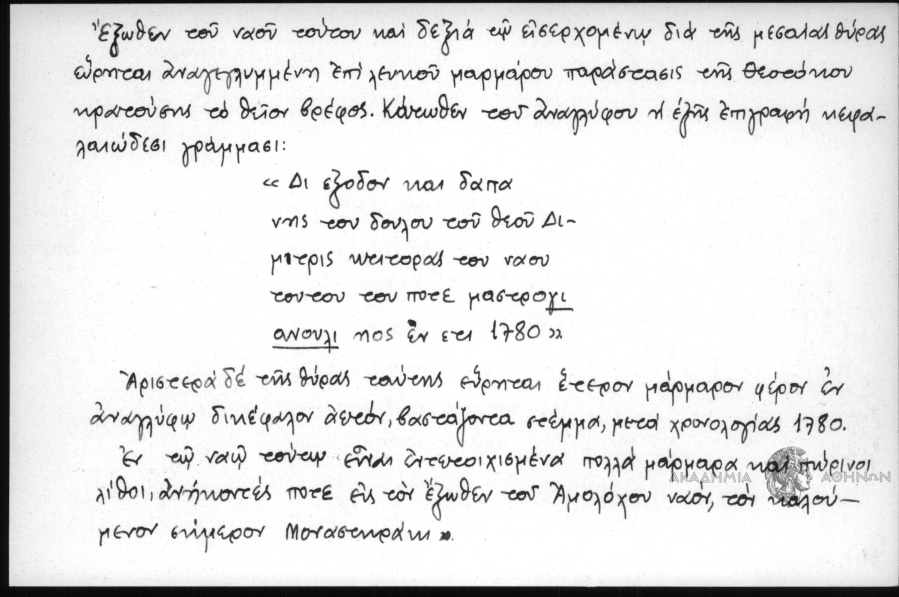 Ἔξωθεν τοῦ ναοῦ τούτου καὶ δεξιὰ τῷ εἰσερχομένῳ διὰ τῆς μεσαίας θύρας
εὕρηται ἀναγεγλυμμένη ἐπὶ λευκοῦ μαρμάρου παράστασις τῆς Θεοτόκου
κρατούσης τὸ θεῖον βρέφος. Κάτωθεν τοῦ ἀναγλύφου ἡ ἑξῆς ἐπιγραφὴ κεφα-
λαιώδεσι γράμμασι:
« Δι εξοδον και δαπα
νης του δουλου τοῦ θεοῦ Δι-
μιτρις κτιτορας του ναου
τουτου του ποτε μαστρογι
ανουλι κος ἐν ετι 1780 »
Ἀριστερὰ δὲ τῆς θύρας ταύτης εὕρηται ἕτερον μάρμαρον φέρον ἐν
ἀναγλύφῳ δικέφαλον ἀετόν, βαστάζοντα στέμμα, μετὰ χρονολογίας 1780.
Ἐν τῷ ναῷ τούτῳ εἶναι ἐντετοιχισμένα πολλὰ μάρμαρα καὶ πώρινοι
λίθοι, ἀνήκοντές ποτε εἰς τὸν ἔξωθεν τοῦ Ἀμολόχου ναόν, τὸν καλού-
μενον σήμερον Μοναστηράκι ».
ΑΚΑΔΗΜΙΑ ΑΘΗΝΩΝ